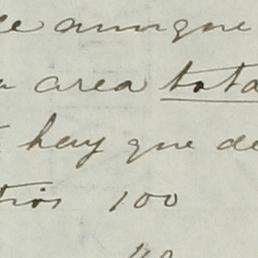 aunque
area tota
hay que de
100